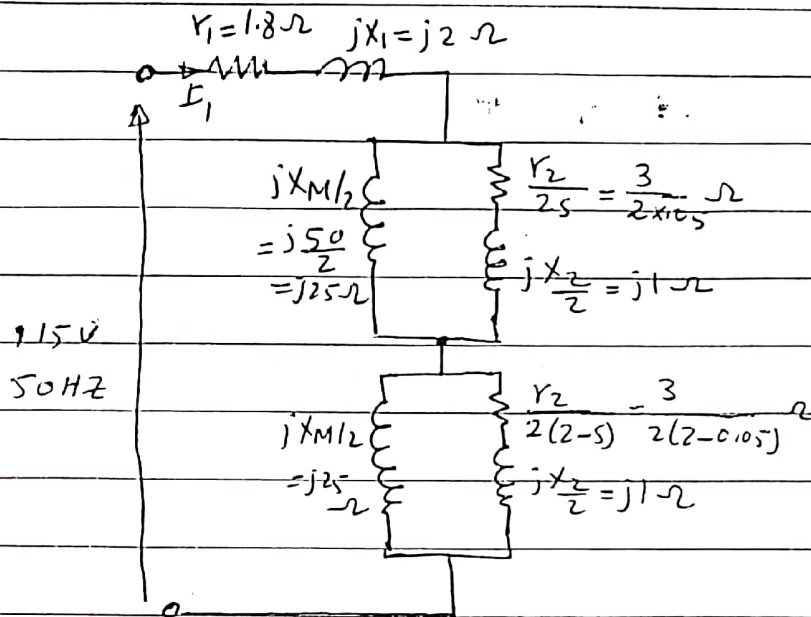 r₁ = 1.8 Ω jX₁ = j2 Ω
I₁
jX_M/2
= j 50/2
= j25 Ω
r₂/2s = 3/(2×0.05) Ω
j X₂/2 = j1 Ω
115 V
50 HZ
jX_M/2
= j25
Ω
r₂/2(2-s) = 3/2(2-0.05) Ω
j X₂/2 = j1 Ω